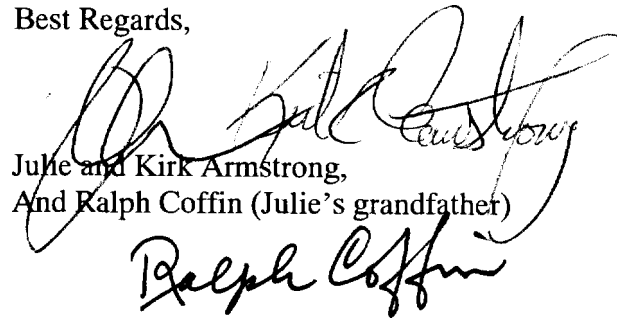 Best Regards,
Kirk Armstrong
Julie and Kirk Armstrong,
And Ralph Coffin (Julie's grandfather)
Ralph Coffin